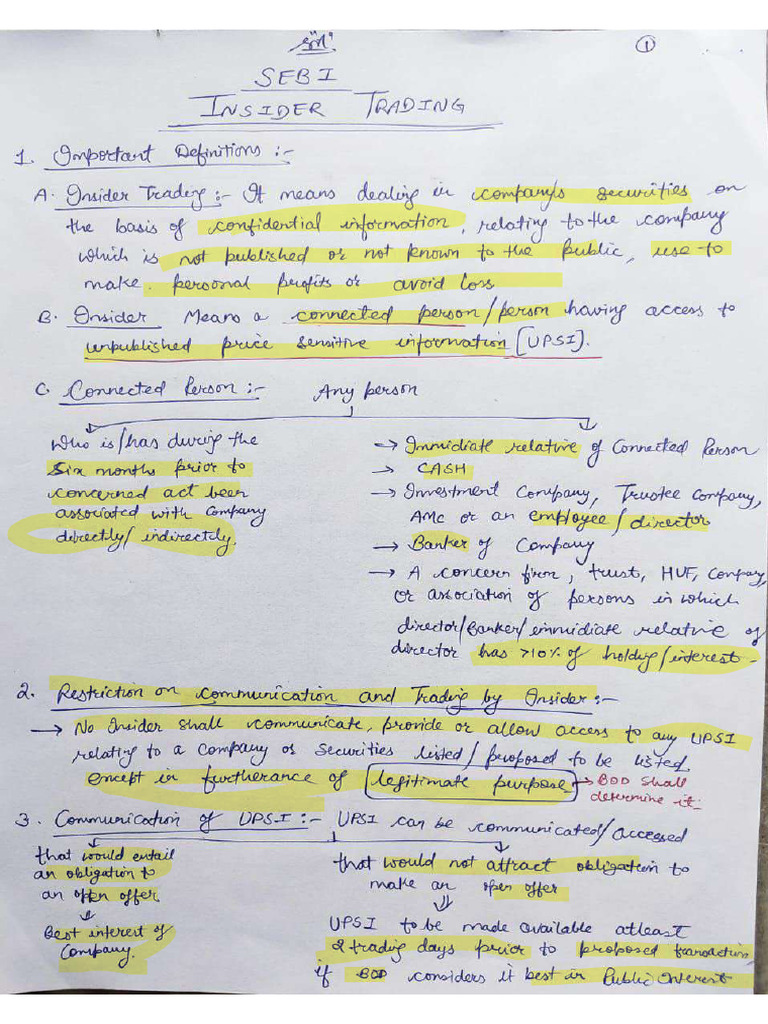 ①
SEBI
INSIDER TRADING
1. Important Definitions :-
A. Insider Trading :- It means dealing in company's securities on
the basis of confidential information, relating to the company
which is not published or not known to the public, use to
make personal profits or avoid loss
B. Insider Means a connected person/person having access to
unpublished price sensitive information [UPSI].
C. Connected Person :- Any person
Who is/has during the
six months prior to
concerned act been
associated with company
directly/indirectly.
→ Immidiate relative of Connected Person
→ CASH
→ Investment Company, Trustee Company,
AMC or an employee/director
→ Banker of Company
→ A concern firm, trust, HUF, Company,
or association of persons in which
director/Banker/immidiate relative of
director has >10% of holding/interest.
2. Restriction on communication and Trading by Insider :-
→ No Insider shall communicate, provide or allow access to any UPSI
relating to a company or securities listed/proposed to be listed
except in furtherance of legitimate purpose → BOD shall
determine it.
3. Communication of UPSI :- UPSI can be communicated/accessed
that would entail
an obligation to
an open offer
↓
Best interest of
Company.
that would not attract obligation to
make an open offer
⇓
UPSI to be made available atleast
2 trading days prior to proposed transaction
if BOD considers it best in Public Interest